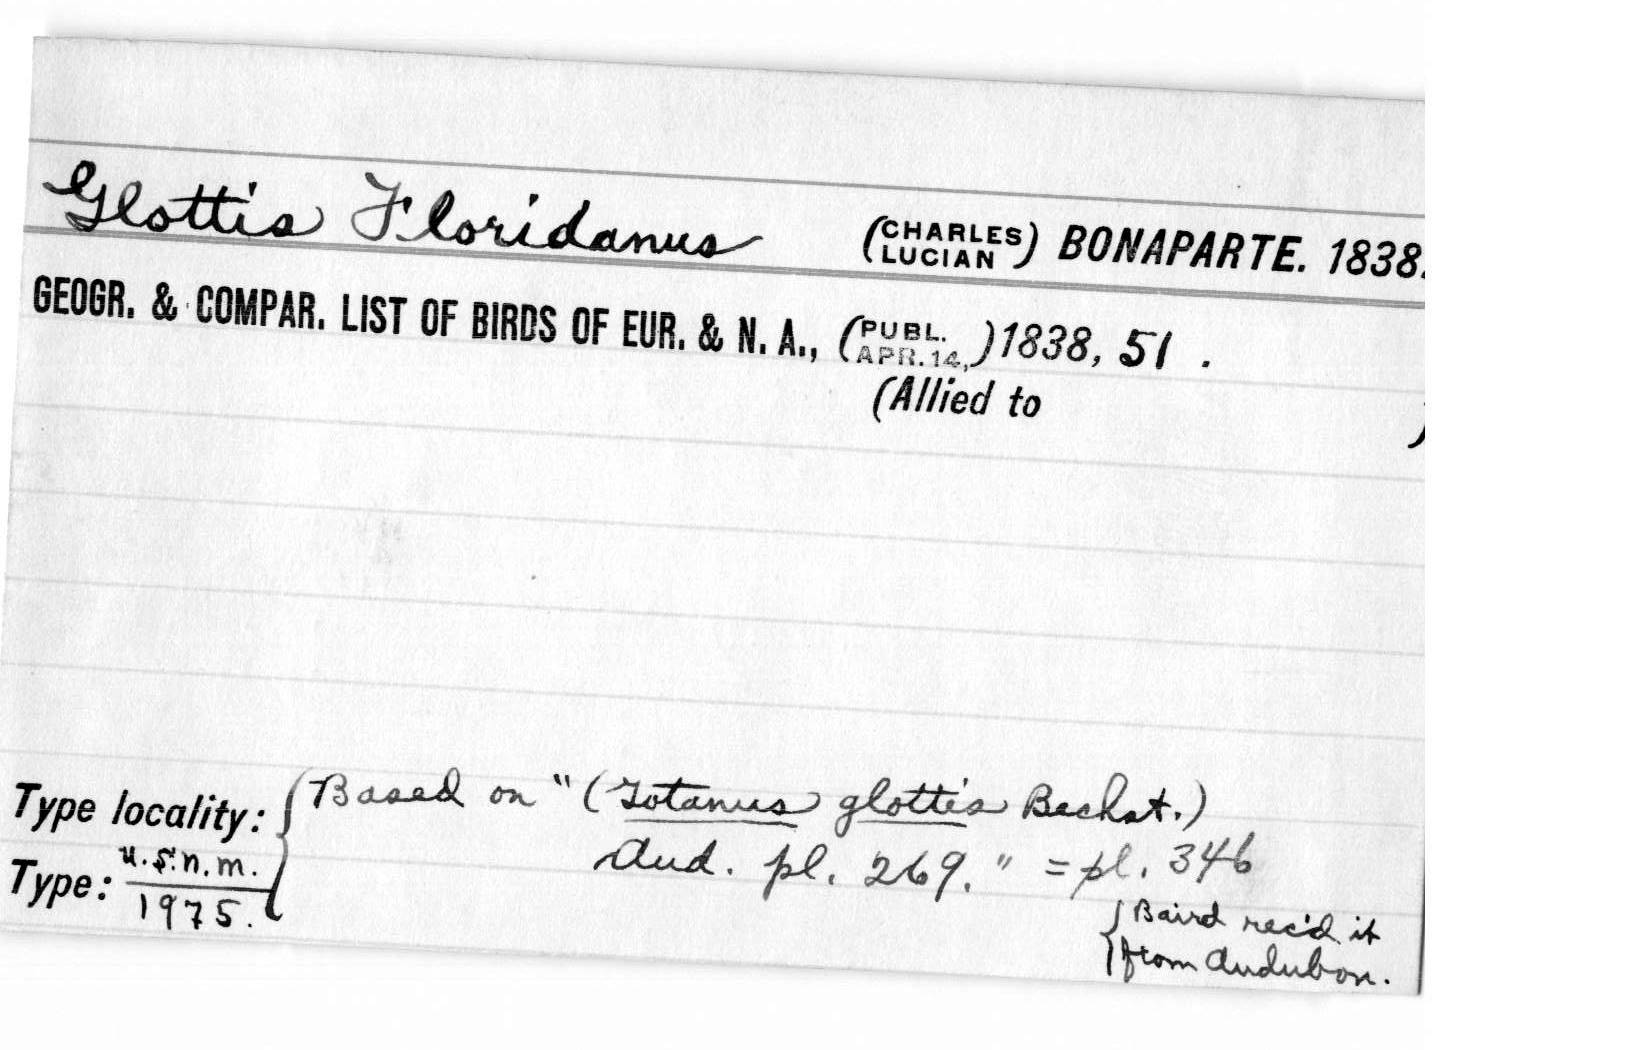 Glottis Floridanus (CHARLES LUCIAN) BONAPARTE. 1838.
GEOGR. & COMPAR. LIST OF BIRDS OF EUR. & N. A., (PUBL. APR. 14,) 1838, 51 .
(Allied to )
Type locality: { Based on "(Totanus glottis Bechst.)
Aud. pl. 269." = pl. 346
Type: U.S.N.M. 1975.
{ Baird rec'd it
from Audubon.